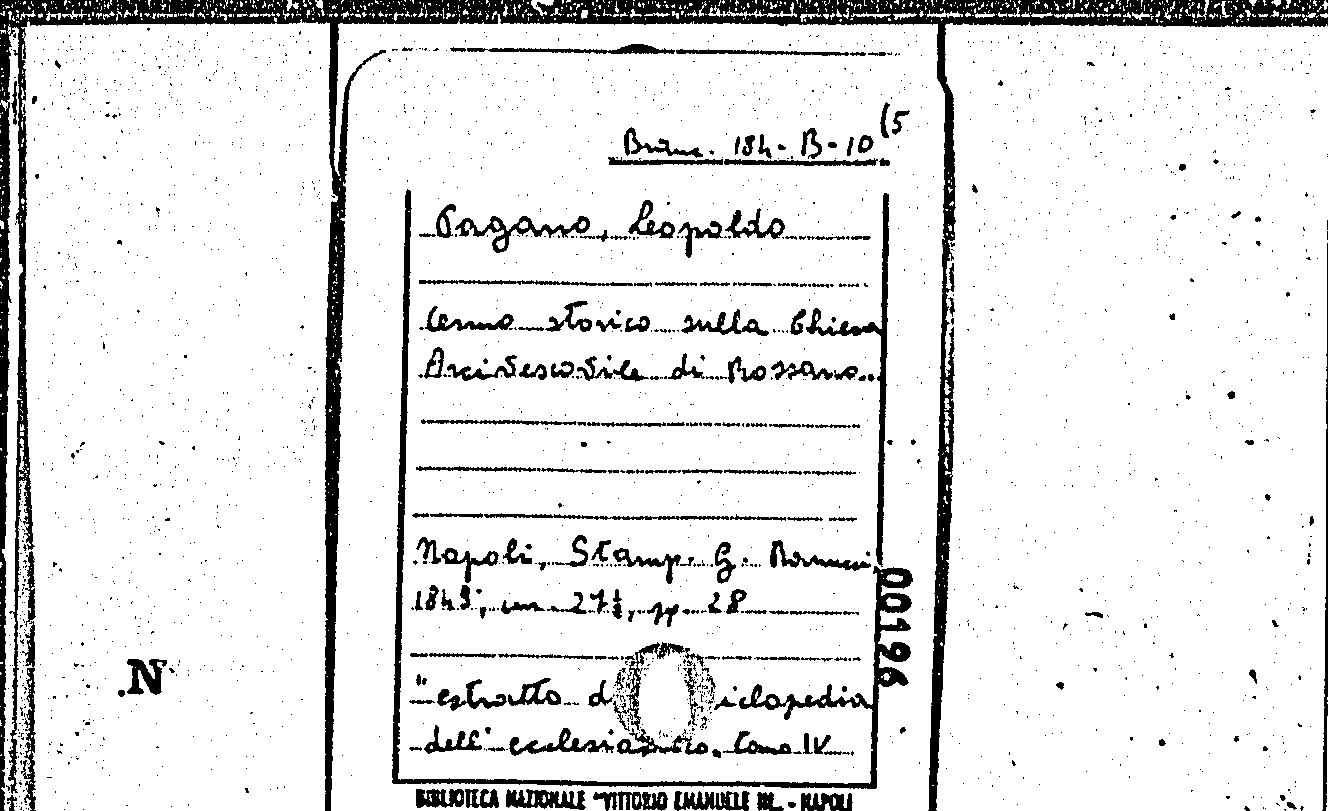 (5
184-B-10
Pagano, Leopoldo
Cenno storico sulla Chiesa
Arcivescovile di Rossano..
Napoli, Stamp. G.
cm. 27½, pp. 28
00196
"estratto d iclopedia
dell'ecclesiastico. Tomo IV
.N
BIBLIOTECA NAZIONALE "VITTORIO EMANUELE III„ - NAPOLI